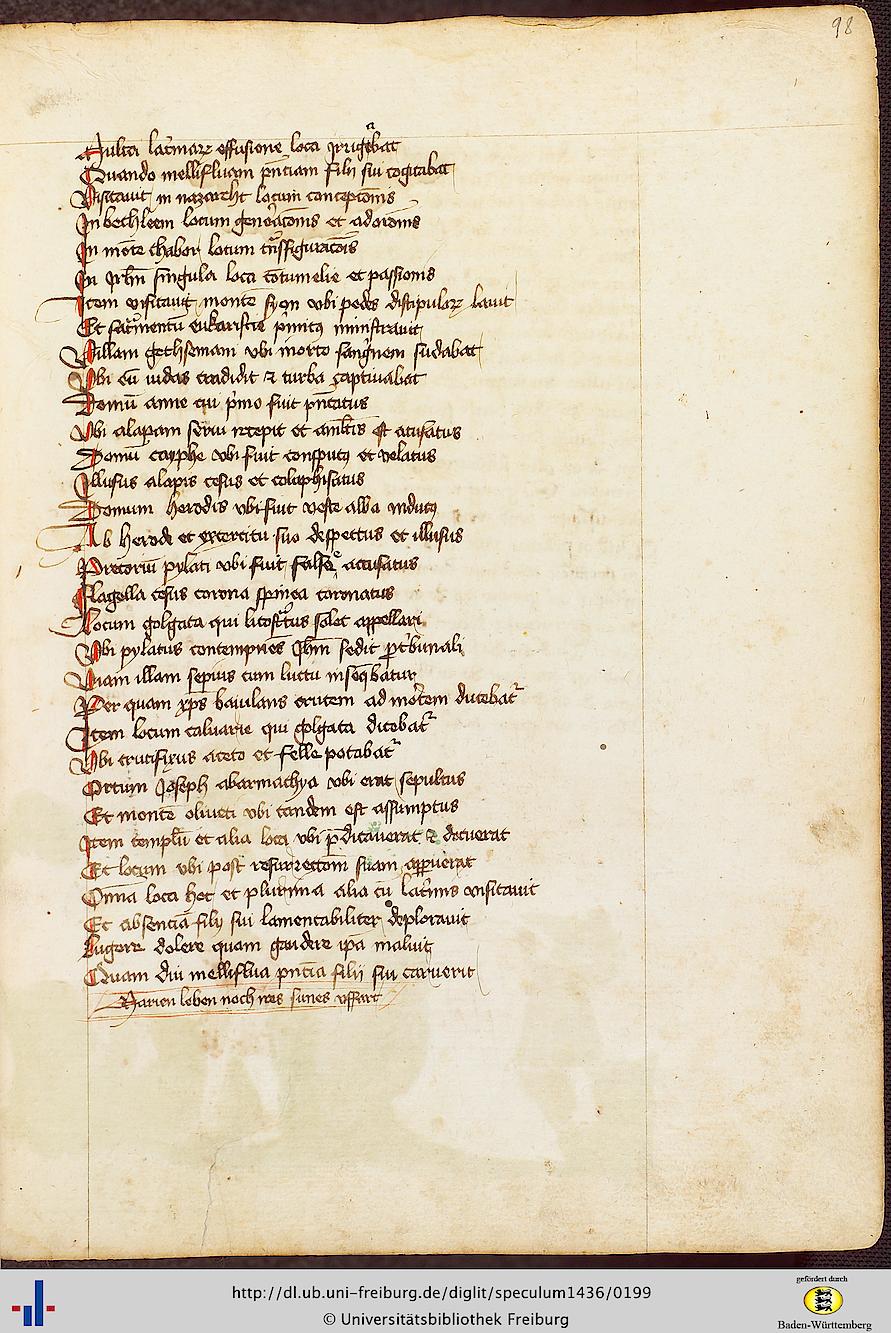 98
Multa lacrimarꝫ effusione loca irrigabat
Quando mellifluam pn̄ciam filij sui cogitabat
Visitauit in nazareht locum concepcōnis
In bethleem locum gen̄acōnis et adorōnis
In mōte thabor locum trāsfiguracōis
In Jrhlm̄ singula loca cōtumelie et passionis
Item visitauit montē syon vbi pedes discipulorꝫ lauit
Et sacͣmentū eukaristie pͥmitꝰ ministrauit
Villam gethsemani vbi in orto sangͥnem sudabat
Vbi eū iudas tradidit ⁊ turba captiuabat
Domū anne cui pͥmo fuit pn̄tatus
Vbi alapam serui recepit et est accusatus
Domū cayphe vbi fuit consputꝰ et velatus
Illusus alapis cesus et colaphisatus
Domum herodis vbi fuit veste alba indutꝰ
Ab herode et exercitu suo despectus et illusus
Pretoriū pylati vbi fuit false accusatus
Flagella cesus corona spinea coronatus
Locum golgata qui licostͣtus solet appellari
Vbi pylatus contempnēs Jhm̄ sedit ꝓ tͥbunali
Viam illam sepius cum luctu inseq̄batur
Per quam xp̄s baiulans crucem ad mortem ducebatͬ
Item locum caluarie qui golgata dicebatͬ
Vbi crucifixus aceto et felle potabatͬ
Ortum Joseph abarmathya vbi erat sepultus
Et montē oliueti vbi tandem est assumptus
Item templū et alia loca vbi p̄dicauerat ⁊ docuerat
Et locum vbi post resurrectōm suam apparuerat
Om̄ia loca hec et plurima alia cū lacͥmis visitauit
Et absenciā filij sui lamentabiliter deplorauit
Lugere dolere quam gaudere ip̄a maluit
Quam diu melliflua pn̄cia filii sui caruerit
Marien leben noch ires sunes vffart
http://dl.ub.uni-freiburg.de/diglit/speculum1436/0199
© Universitätsbibliothek Freiburg
gefördert durch
Baden-Württemberg